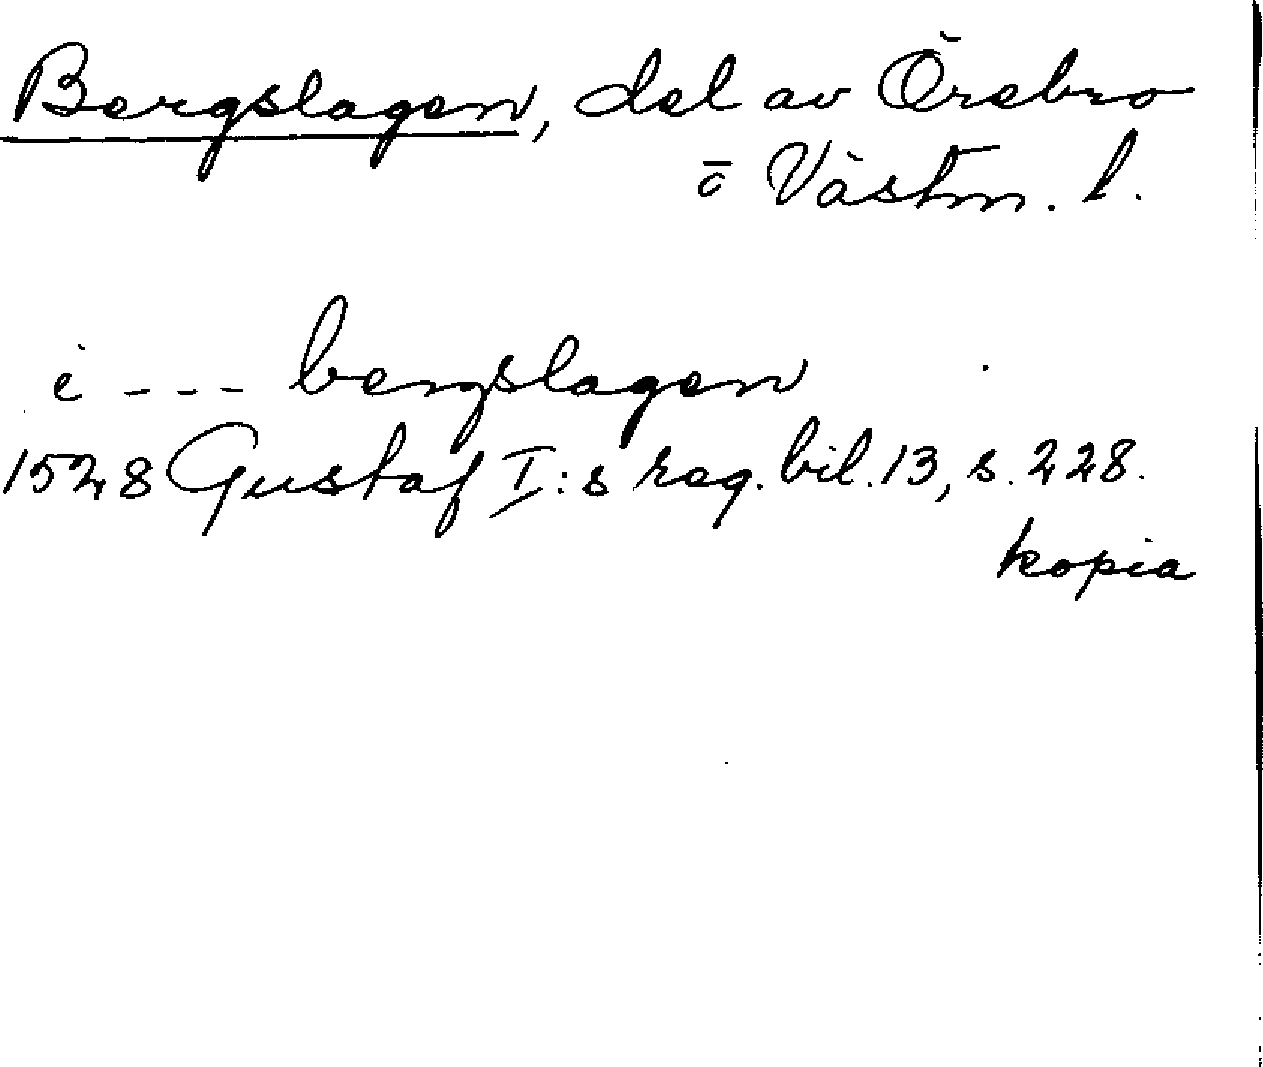 Bergslagen, del av Örebro
o Västm. l.
i --- bergslagen
1528 Gustaf I:s reg. bil. 13, s. 228.
kopia